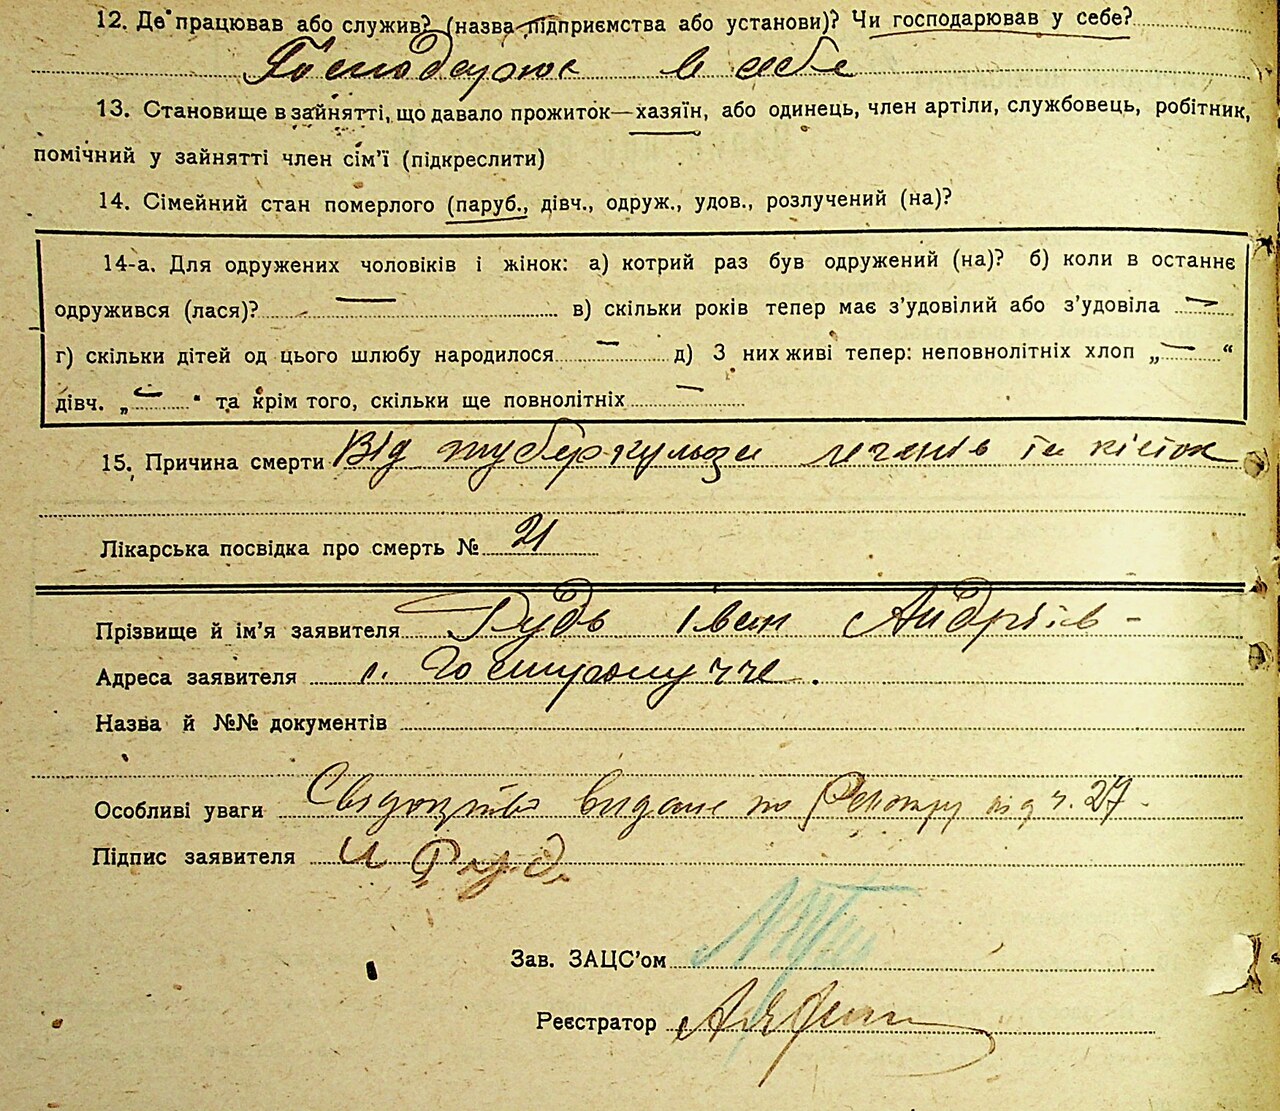 12. Де працював або служив? (назва підприємства або установи)? Чи господарював у себе?
Господарює в себе
13. Становище в зайнятті, що давало прожиток—хазяїн, або одинець, член артіли, службовець, робітник,
помічний у зайнятті член сім'ї (підкреслити)
14. Сімейний стан померлого (паруб., дівч., одруж., удов., розлучений (на)?
14-а. Для одружених чоловіків і жінок: а) котрий раз був одружений (на)? б) коли в останнє
одружився (лася)? — в) скільки років тепер має з'удовілий або з'удовіла —
г) скільки дітей од цього шлюбу народилося — д) З них живі тепер: неповнолітніх хлоп „—“
дівч. „—“ та крім того, скільки ще повнолітніх —
15. Причина смерти Від туберкульозу легенів та кісток
Лікарська посвідка про смерть № 21
Прізвище й ім'я заявителя Рудь Іван Андріїв-
Адреса заявителя с.
Назва й №№ документів
Особливі уваги Свідоцтво видане по від ч. 27-
Підпис заявителя И Рудь
Зав. ЗАЦС'ом
Реєстратор